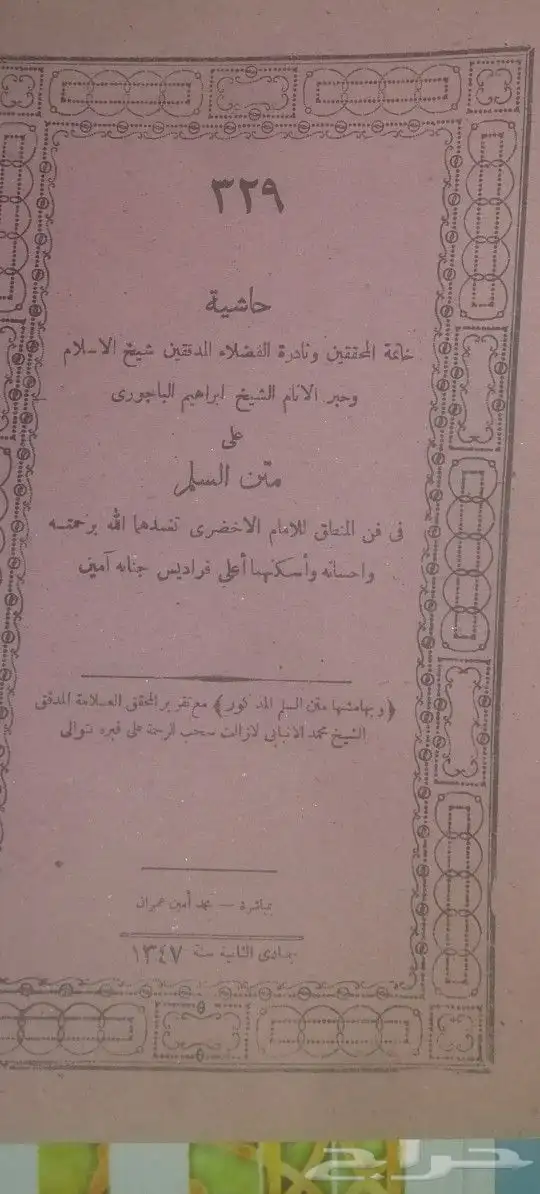 ٣٢٩
حاشية
خاتمة المحققين ونادرة الفضلاء المدققين شيخ الاسلام
وحبر الانام الشيخ ابراهيم الباجورى
على
متن السلم
فى فن المنطق للامام الاخضرى تغمدهما الله برحمته
واحسانه وأسكنهما أعلى فراديس جنانه آمين
﴿وبهامشها متن السلم المذكور﴾ مع تقرير المحقق العلامة المدقق
الشيخ محمد الانبابى لازالت سحب الرحمة على قبره تتوالى
بمباشرة — محمد أمين عمران
جمادى الثانية سنة ١٣٤٧
حراج